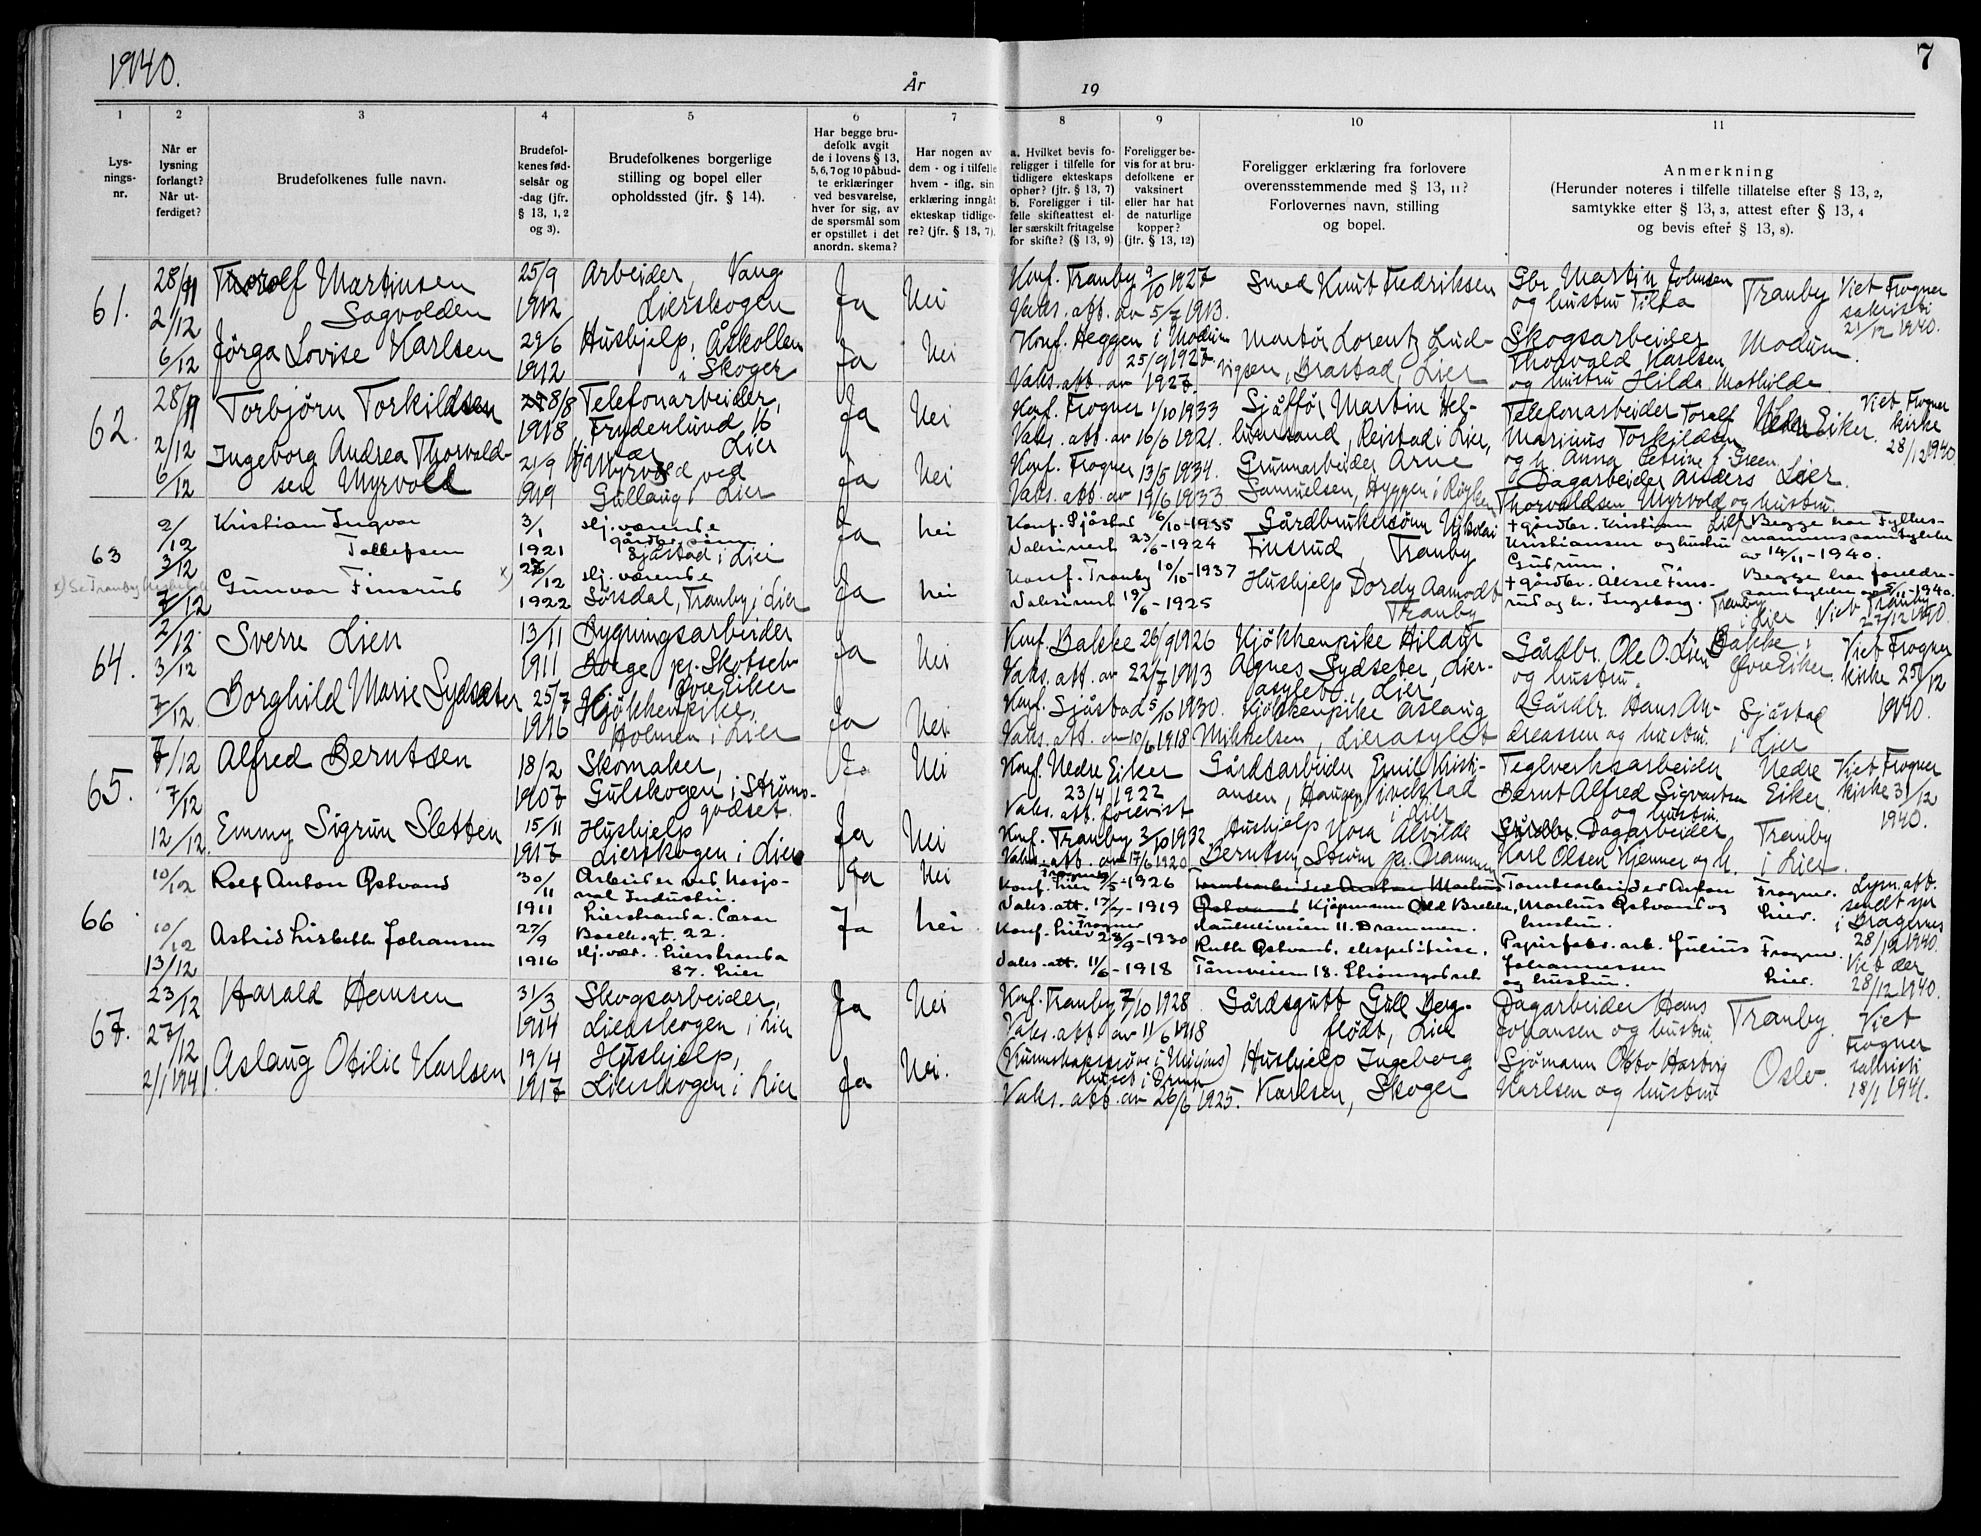 1940.
År
19
7
1
2
3
4
5
6
7
8
9
10
11
Lys-
nings-
nr.
Når er
lysning
forlangt?
Når ut-
ferdiget?
Brudefolkenes fulle navn.
Brudefol-
kenes fød-
selsår og
-dag (jfr.
§ 13, 1, 2
og 3).
Brudefolkenes borgerlige
stilling og bopel eller
opholdssted (jfr. § 14).
Har begge bru-
defolk avgit
de i lovens § 13,
5, 6, 7 og 10 påbud-
te erklæringer
ved besvarelse,
hver for sig, av
de spørsmål som
er opstillet i det
anordn. skema?
Har nogen av
dem - og i tilfelle
hvem - iflg. sin
erklæring inngåt
ekteskap tidlige-
re? (jfr. § 13, 7).
a. Hvilket bevis fo-
religger i tilfelle for
tidligere ekteskaps
ophør? (jfr. § 13, 7)
b. Foreligger i til-
felle skifteattest el-
ler særskilt fritagelse
for skifte? (§ 13, 9)
Foreligger be-
vis for at bru-
defolkene er
vaksinert
eller har hat
de naturlige
kopper?
(jfr. § 13, 12)
Foreligger erklæring fra forlovere
overensstemmende med § 13, 11?
Forlovernes navn, stilling
og bopel.
Anmerkning
(Herunder noteres i tilfelle tillatelse efter § 13, 2,
samtykke efter § 13, 3, attest efter § 13, 4
og bevis efter § 13, 8).
61.
28/11
2/12
6/12
Thorolf Martinsen
Sagvolden
25/9
1912
Arbeider, Vang
Lierskogen
Ja
Nei
Konf. Tranby 9/10 1927
Vaks. att. av 5/7 1913.
Smed Knut Fredriksen
Gbr. Martin Johnsen
og hustru Tilla
Tranby
Viet Frogner
sakristi
21/12 1940.
Jørga Lovise Karlsen
29/6
1912
Hushjelp, Åskollen
i Skoger
Ja
Nei
Konf. Heggen i Modum
25/9 1927.
Vaks. att. av 1927
Montør Lorentz Lud-
vigsen, Brastad, Lier
Skogsarbeider
Thorvald Karlsen
og hustru Hilda Mathilde
Modum.
62.
28/11
2/12
6/12
Torbjørn Torkildsen
28/8
1918
Telefonarbeider,
Fruderlund, 16
Lier
Ja
Nei
Konf. Frogner 1/10 1933
Vaks. att. av 16/6 1921.
Sjåffør Martin Hel-
lumsand, Reistad i Lier,
Telefonarbeider Torolf
Marius Torkildsen
og h. Anna Petrine f. Green
Nedre Eiker.
Viet Frogner
kirke
28/12 1940.
Ingeborg Andrea Thorvald-
sen Myrvold
21/9
1919
Myrvold ved
Gullaug i Lier
Ja
Nei
Konf. Frogner 13/5 1934.
Vaks. att. av 19/6 1933
Grunnarbeider Arne
Samuelsen, Hyggen i Røyken
Dagarbeider Anders
Thorvaldsen Myrvold og hustru.
Lier
63
2/12
3/12
7/12
Kristian Ingvar
Tollefsen
3/1
1921
Hj. værende
gårdbr. sønn
Sjåstad i Lier
Ja
Nei
Konf. Sjåstad 6/10-1935
Vaksinert 23/6-1924
Gårdbrukersønn Nikolai
Finsrud Tranby
+ gårdbr. Kristian
Kristiansen og hustru
Gudrun.
Begge har Fylkes-
mannens samtykke
av 14/11-1940.
x) Se Tranby
Gunvor Finsrud
x)
26/12
1922
Hj. værende
Sørsdal, Tranby i Lier
Ja
Nei
Konf. Tranby 10/10-1937
Vaksinert 19/6-1925
Hushjelp Dordy Aamodt
Tranby
+ gårdbr. Aksel Fins-
rud og h. Ingeborg.
Begge har foreldre-
samtykke av 5/11-1940.
Tranby
i Lier
Viet Tranby
27/12 1940.
64.
2/12
3/12
7/12
Sverre Lien
13/11
1911
Bygningsarbeider
Borge pr. Skotselv
Øvre Eiker
Ja
Nei
Konf. Bakke 26/9 1926
Vaks. att. av 22/7 1913
Kjøkkenpike Hildur
Agnes Sydseter, Lier-
asylet, Lier.
Gårdbr. Ole O. Lien
og hustru.
Bakke i
Øvre Eiker.
Viet Frogner
kirke 25/12
1940.
Borghild Marie Sydsæter
25/7
1916
Kjøkkenpike,
Holmen i Lier
Ja
Nei
Konf. Sjåstad 5/10 1930.
Vaks. att. av 10/6 1918
Kjøkkenpike Aslaug
Mikkelsen, Lierasylet
Gårdbr. Hans An-
dreassen og hustru.
Sjåstad
i Lier
65.
7/12
7/12
12/12.
Alfred Berntsen
18/2
1907
Skomaker,
Gulskogen i Strøms-
godset.
Ja
Nei
Konf. Nedre Eiker
23/4 1922
Vaks. att. forevist
Gårdsarbeider Emil Kristi-
ansen, Haugen
i Lier
Teglverksarbeider
Bernt Alfred Sigvartsen
og hustru.
Nedre
Eiker.
Viet Frogner
kirke 31/12
1940.
Emmy Sigrun Sletten
15/11
1917
Hushjelp
Lierskogen i Lier
Ja
Nei
Konf. Tranby 3/10 1932
Vaks. att. av 17/6 1920
Hushjelp Nora Alvilde
Berntsen, Strøm pr. Drammen
Dagarbeider
Karl Olsen Kjenner og h.
Tranby
i Lier.
66
10/12
10/12
13/12
Rolf Anton Østvand
30/11
1911
Arbeider ved Nasjo-
nal Industri.
Lierstranda.
Ja
Nei
Frogner
Konf. Lier 9/5-1926
Vaks. att. 17/7-1919
Tomtearbeider Anton Marius
Østvand Kjøpmann Odd Brekke,
Haukeliveien 11. Drammen.
Tomtearbeider Anton
Marius Østvand og
hustru.
Frogner.
Lier.
Lysn. att.
sendt spr
i Bragernes
28/12 1940.
Viet der
28/12 1940.
Astrid Lisbeth Johansen
27/9
1916
Hj. vær. Lierstranda
87. Lier
Ja
Nei
Frogner
Konf. Lier 28/9-1930
Vaks. att. 11/6-1918
Ruth Østvand, ekspeditrise,
Tårnveien 18. Strømsgodset
Papirfabr. arb. Julius
Johannessen
og hustru.
Frogner.
Lier.
67.
23/12
27/12
2/1 1941.
Harald Hansen
31/3
1914
Skogsarbeider,
Lierskogen i Lier
Ja
Nei
Konf. Tranby 7/10 1928
Vaks. att. av 11/6 1918
Gårdsgutt Gull Berg-
flødt, Lier
Dagarbeider Hans
Johansen og hustru
Tranby.
Viet
Frogner
sakristi
18/1 1941.
Aslaug Otilie Karlsen
19/4
1917
Hushjelp,
Lierskogen i Lier
Ja
Nei.
(Kunnskapsprøve i Misjons)
Vaks. att. av 26/6 1925.
Hushjelp Ingeborg
Karlsen, Skoger
Sjømann Otto Hartvig
Karlsen og hustru
Oslo.